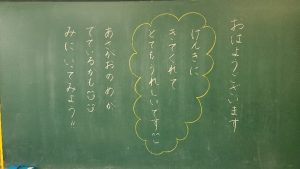 おはようございます
げんきに
きてくれて
とてもうれしいです
あさがおのめが
でているかも
みにいってみよう!!